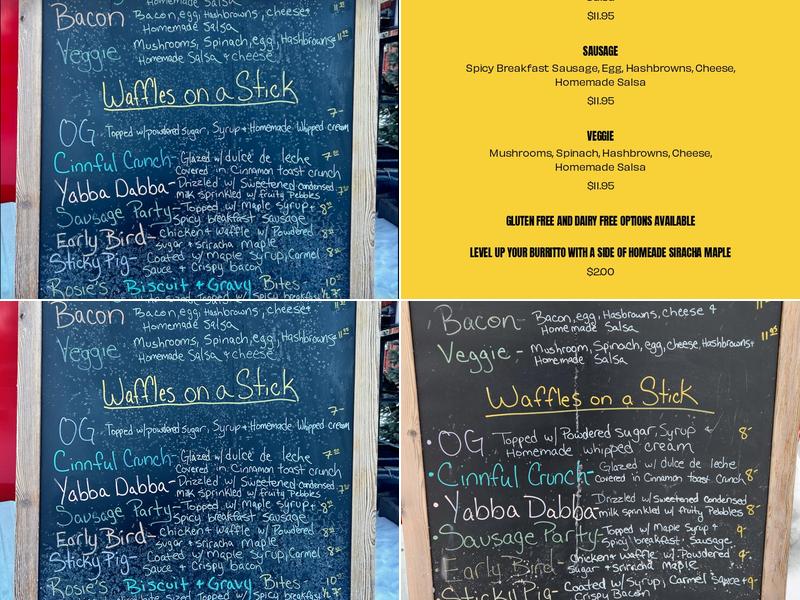 Homemade Salsa
Bacon Bacon, egg, Hashbrowns, cheese +
Homemade Salsa
Veggie - Mushrooms, Spinach, egg, Hashbrowns 11.95
Homemade Salsa + cheese
Waffles on a Stick
7-
OG Topped w/powdered sugar, Syrup + Homemade Whipped cream
Cinnful Crunch - Glazed w/ dulce de leche 7
Covered in Cinnamon toast crunch
Yabba Dabba - Drizzled w/ Sweetened condensed
milk sprinkled w/ fruity Pebbles
Sausage Party - Topped w/ maple syrup + 8
Spicy breakfast sausage
Early Bird - Chicken + Waffle w/ Powdered 8
sugar + sriracha maple
Sticky Pig - Coated w/ maple syrup, Carmel 8
Sauce + Crispy bacon
Rosie's Biscuit + Gravy Bites - 10
Topped w/ Spicy breakfast
$11.95
SAUSAGE
Spicy Breakfast Sausage, Egg, Hashbrowns, Cheese,
Homemade Salsa
$11.95
VEGGIE
Mushrooms, Spinach, Hashbrowns, Cheese,
Homemade Salsa
$11.95
GLUTEN FREE AND DAIRY FREE OPTIONS AVAILABLE
LEVEL UP YOUR BURRITTO WITH A SIDE OF HOMEADE SIRACHA MAPLE
$2.00
Bacon Bacon, egg, Hashbrowns, cheese +
Homemade Salsa
Veggie - Mushrooms, Spinach, egg, Hashbrowns 11.95
Homemade Salsa + cheese
Waffles on a Stick
7-
OG Topped w/powdered sugar, Syrup + Homemade Whipped cream
Cinnful Crunch - Glazed w/ dulce de leche 7
Covered in Cinnamon toast crunch
Yabba Dabba - Drizzled w/ Sweetened condensed
milk sprinkled w/ fruity Pebbles
Sausage Party - Topped w/ maple syrup + 8
Spicy breakfast sausage
Early Bird - Chicken + Waffle w/ Powdered 8
sugar + sriracha maple
Sticky Pig - Coated w/ maple syrup, Carmel 8
Sauce + Crispy bacon
Rosie's Biscuit + Gravy Bites - 10
Topped w/ Spicy breakfast
Bacon - Bacon, egg, Hasbrowns, cheese +
Homemade Salsa
Veggie - Mushroom, Spinach, egg, Cheese, Hashbrowns + 11.95
Homemade Salsa
Waffles on a Stick
• OG Topped w/ Powdered Sugar, Syrup + 8-
Homemade whipped cream
• Cinnful Crunch - Glazed w/ dulce de leche
Covered in Cinnamon toast Crunch 8-
• Yabba Dabba - Drizzled w/ Sweetened condensed
milk sprinkled w/ fruity Pebbles 8-
• Sausage Party - Topped w/ Maple Syrup + 9-
Spicy breakfast Sausage
Early Bird - Chicken + Waffle w/ Powdered 9-
sugar + Sriracha maple
Sticky Pig - Coated w/ Syrup, Carmel Sauce + 9-
Crispy Bacon